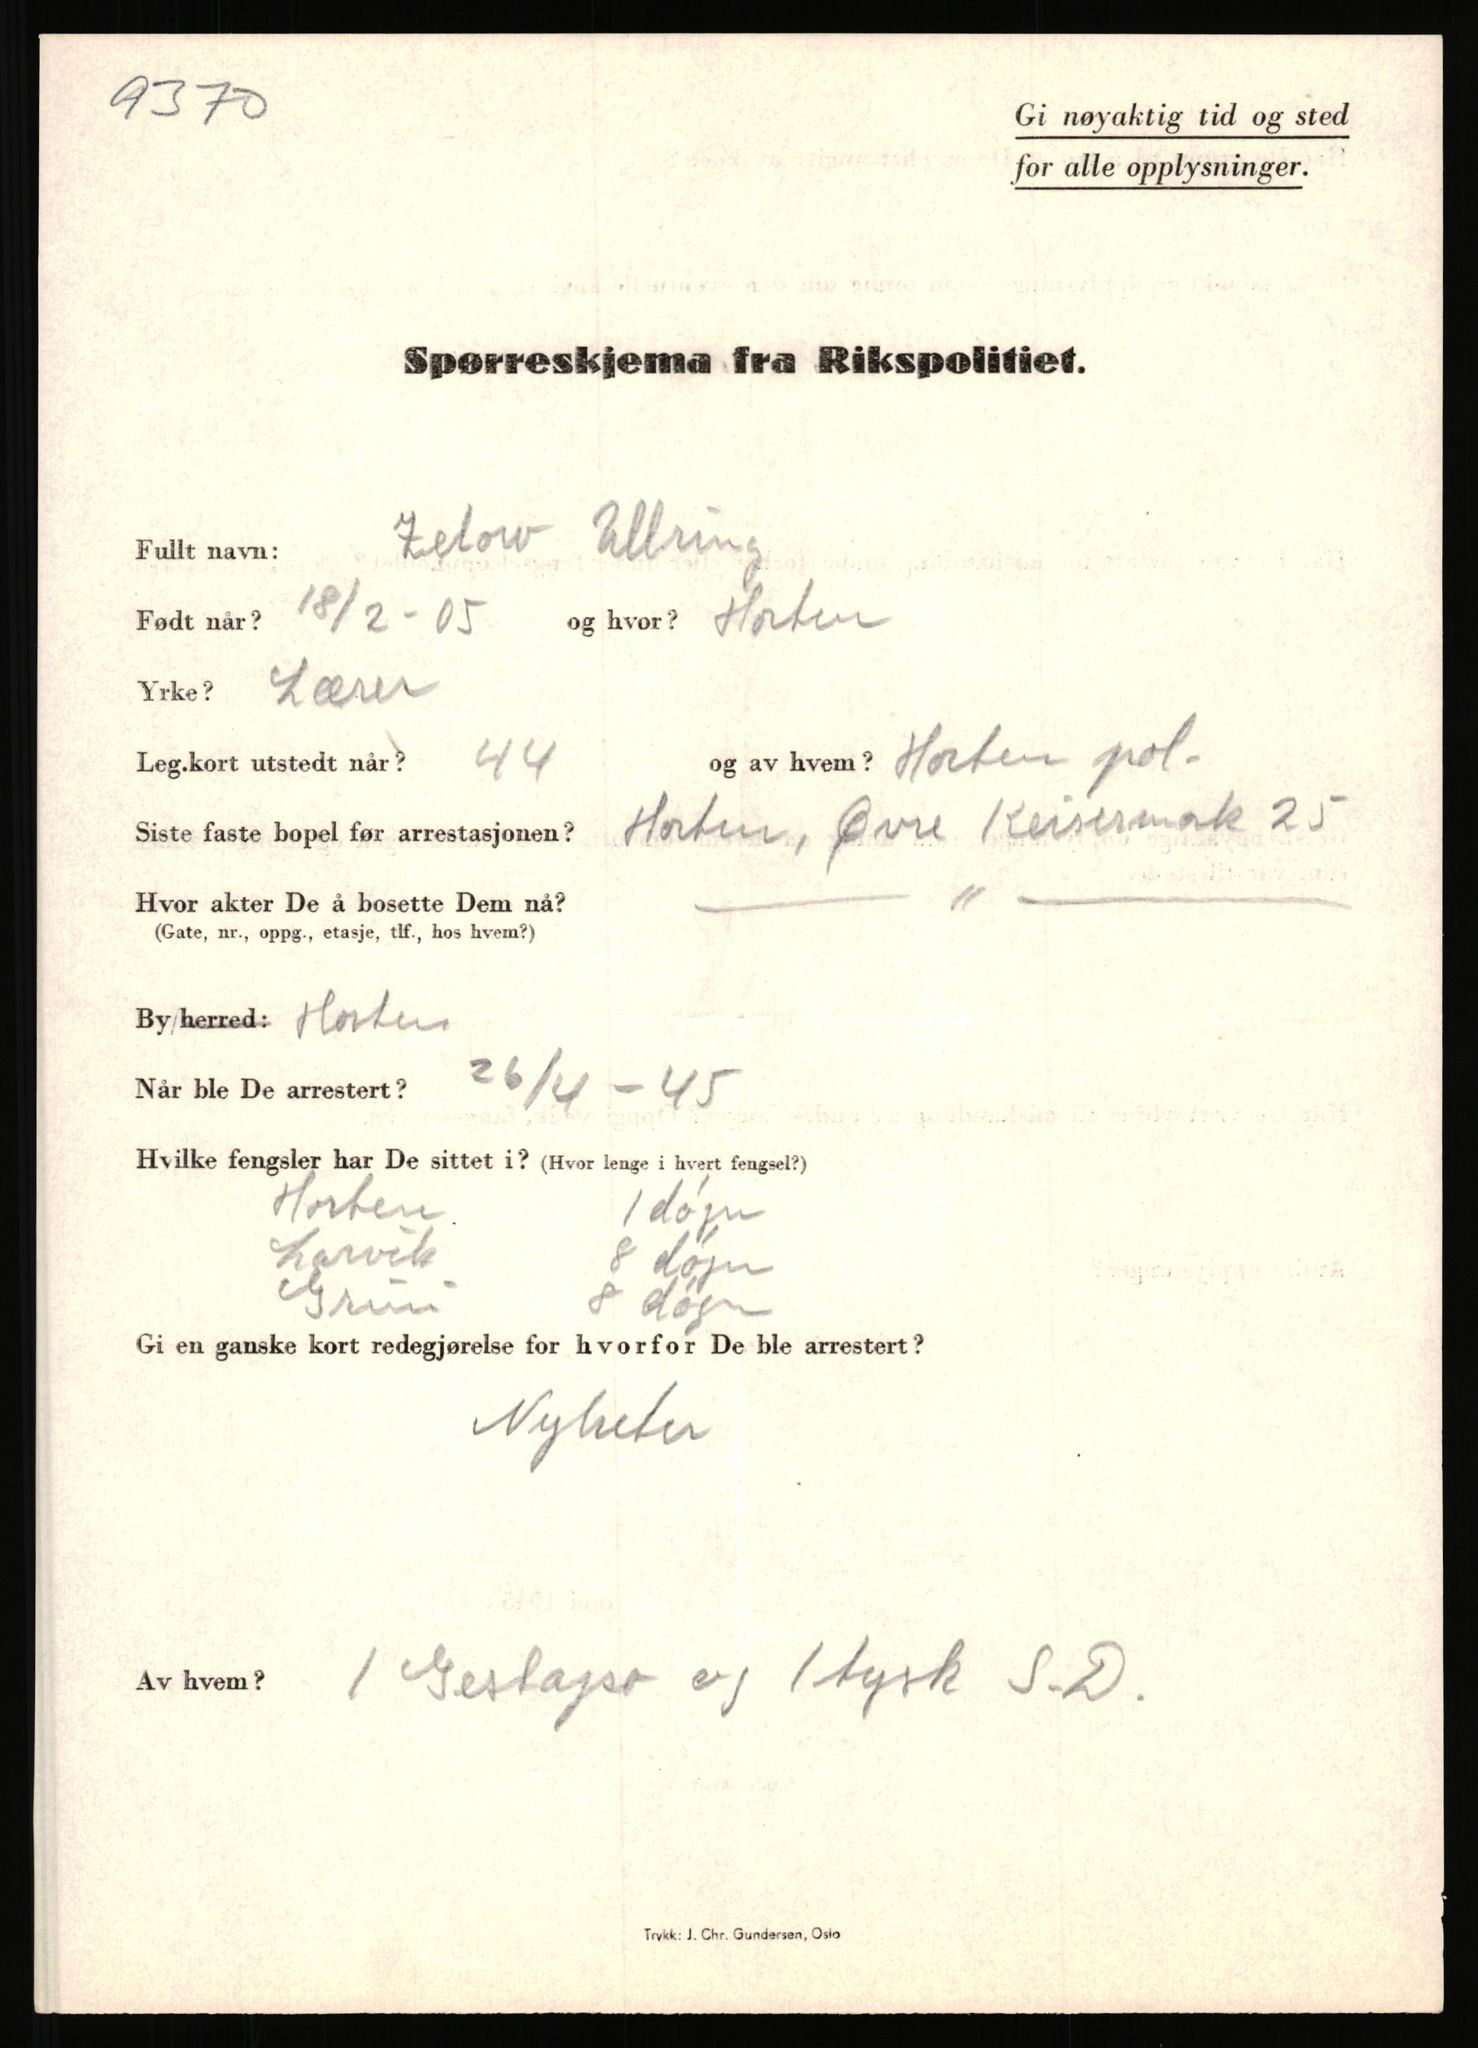 9370
Gi nøyaktig tid og sted
for alle opplysninger.
Spørreskjema fra Rikspolitiet.
Fullt navn: Zelow Ullring
Født når? 18/2-05 og hvor? Horten
Yrke? Lærer
Leg.kort utstedt når? 44 og av hvem? Horten pol.
Siste faste bopel før arrestasjonen? Horten, Øvre Keisermark 25
Hvor akter De å bosette Dem nå? — " —
(Gate, nr., oppg., etasje, tlf., hos hvem?)
By/herred: Horten
Når ble De arrestert? 26/4-45
Hvilke fengsler har De sittet i? (Hvor lenge i hvert fengsel?)
Horten 1 døgn
Larvik 8 døgn
Grini 8 døgn
Gi en ganske kort redegjørelse for hvorfor De ble arrestert?
Nyheter
Av hvem? 1 Gestapo og 1 tysk S.D.
Trykk: J. Chr. Gundersen, Oslo